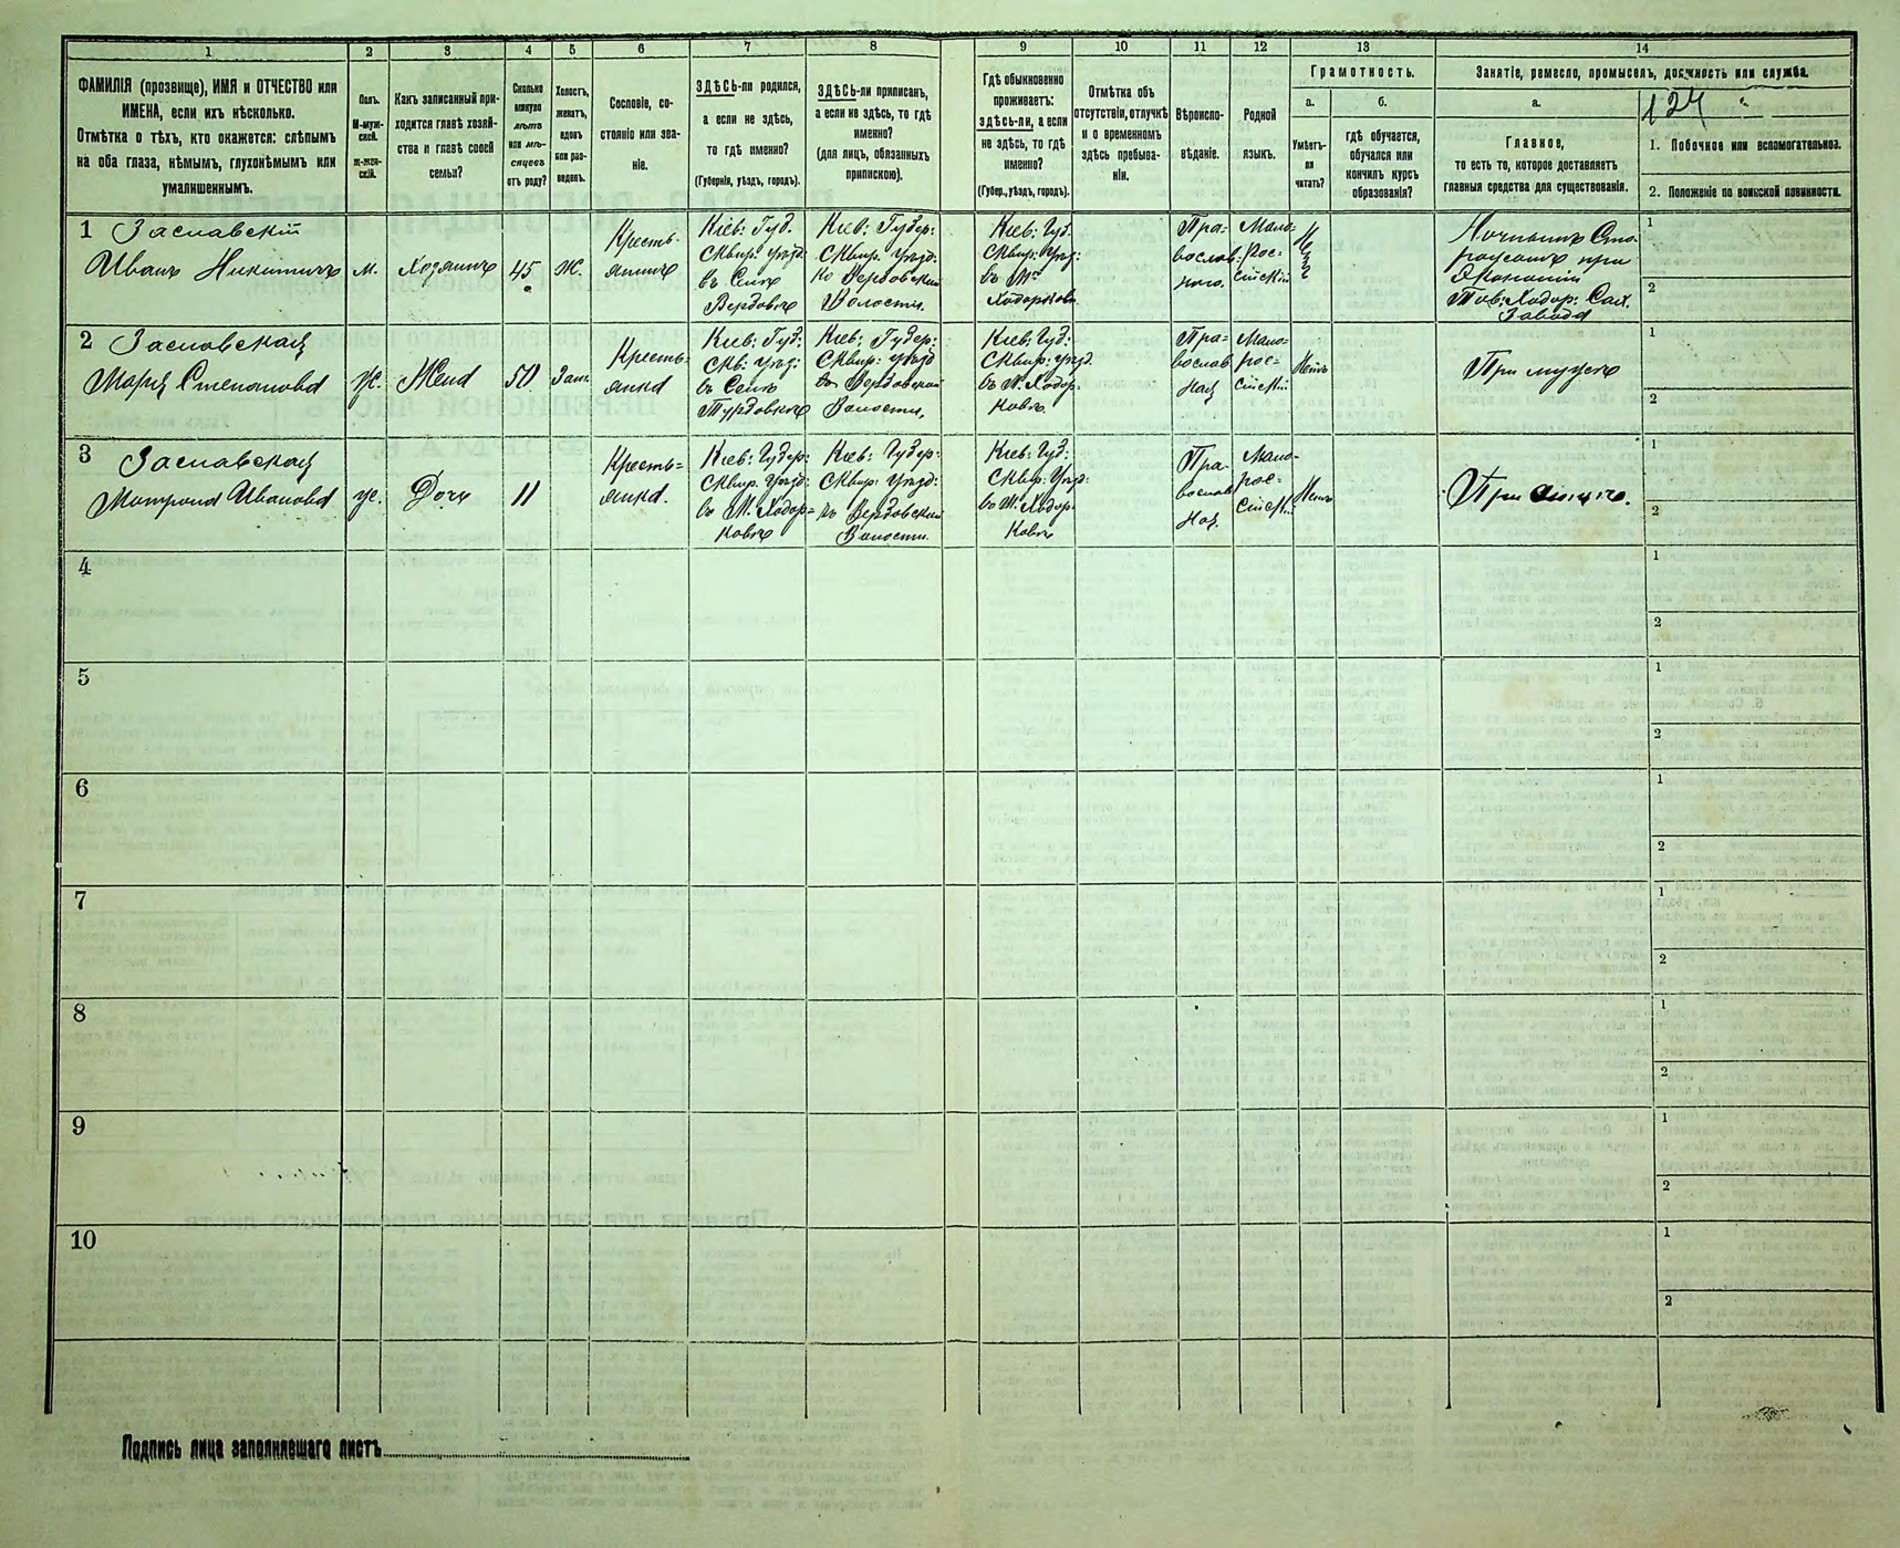 1
2
3
4
5
6
7
8
9
10
11
12
13
14
ФАМИЛІЯ (прозвище), ИМЯ и ОТЧЕСТВО или
ИМЕНА, если ихъ нѣсколько.
Отмѣтка о тѣхъ, кто окажется: слѣпымъ
на оба глаза, нѣмымъ, глухонѣмымъ или
умалишеннымъ.
Полъ.
М-муж-
ской.
ж-жен-
скій.
Какъ записанный при-
ходится главѣ хозяй-
ства и главѣ своей
семьи?
Сколько
минуло
лѣтъ
или мѣ-
сяцевъ
отъ роду?
Холостъ,
женатъ,
вдовъ
или раз-
веденъ.
Сословіе, со-
стояніе или зва-
ніе.
ЗДѢСЬ-ли родился,
а если не здѣсь,
то гдѣ именно?
(Губернія, уѣздъ, городъ).
ЗДѢСЬ-ли приписанъ,
а если не здѣсь, то гдѣ
именно?
(для лицъ, обязанныхъ
припискою).
Гдѣ обыкновенно
проживаетъ:
здѣсь-ли, а если
не здѣсь, то гдѣ
именно?
(Губер., уѣздъ, городъ).
Отмѣтка объ
отсутствіи, отлучкѣ
и о временномъ
здѣсь пребыва-
ніи.
Вѣроиспо-
вѣданіе.
Родной
языкъ.
Грамотность.
а.
б.
Умѣетъ-
ли
читать?
гдѣ обучается,
обучался или
кончилъ курсъ
образованія?
Занятіе, ремесло, промыселъ, должность или служба.
а.
124
Главное,
то есть то, которое доставляетъ
главныя средства для существованія.
1. Побочное или вспомогательное.
2. Положеніе по воинской повинности.
1 Заславскій
Иванъ Никитичъ
м.
Хозяинъ
45
Ж.
Кресть-
янинъ
Кіев: Губ.
Сквир. Уѣзд:
въ Селѣ
Вербовкѣ
Кіев: Губер:
Сквир. Уѣзд:
ко Вербовской
Волости.
Кіев: Губ.
Сквир: Уѣзд:
въ М.
Ходорковѣ
Пра-
вослав:
наго.
Мало-
Рос-
сійскій
Ночнымъ Сто-
рожемъ при
Экономіи
Тов: Ходор: Сах.
Завода
1
2
2 Заславская
Марія Степановна
Ж.
Жена
50
Зам.
Кресть-
янка
Кіев: Губ:
Скв: Уѣзд:
въ Селѣ
Кіев: Губер:
Сквир: Уѣзд
въ Вербовской
Волости.
Кіев: Губ:
Сквир: Уѣзд.
въ М. Ходор-
ковѣ.
Пра-
вослав
ная
Мало-
рос-
сійскій
Нѣтъ
При мужѣ
1
2
3 Заславская
Матрона Ивановна
Ж.
Дочь
11
Кресть-
янка.
Кіев: Губер:
Сквир. Уѣзд:
въ М. Ходор-
ковѣ
Кіев: Губер:
Сквир: Уѣзд:
въ Вербовской
Волости.
Кіев: Губ:
Сквир: Уѣзд:
въ М. Ходор-
ковѣ
Пра-
вослав
ная.
Мало-
рос-
сійскій
Нѣтъ
При отцѣ.
1
2
4
1
2
5
1
2
6
1
2
7
1
2
8
1
2
9
1
2
10
1
2
Подпись лица заполнявшаго листъ